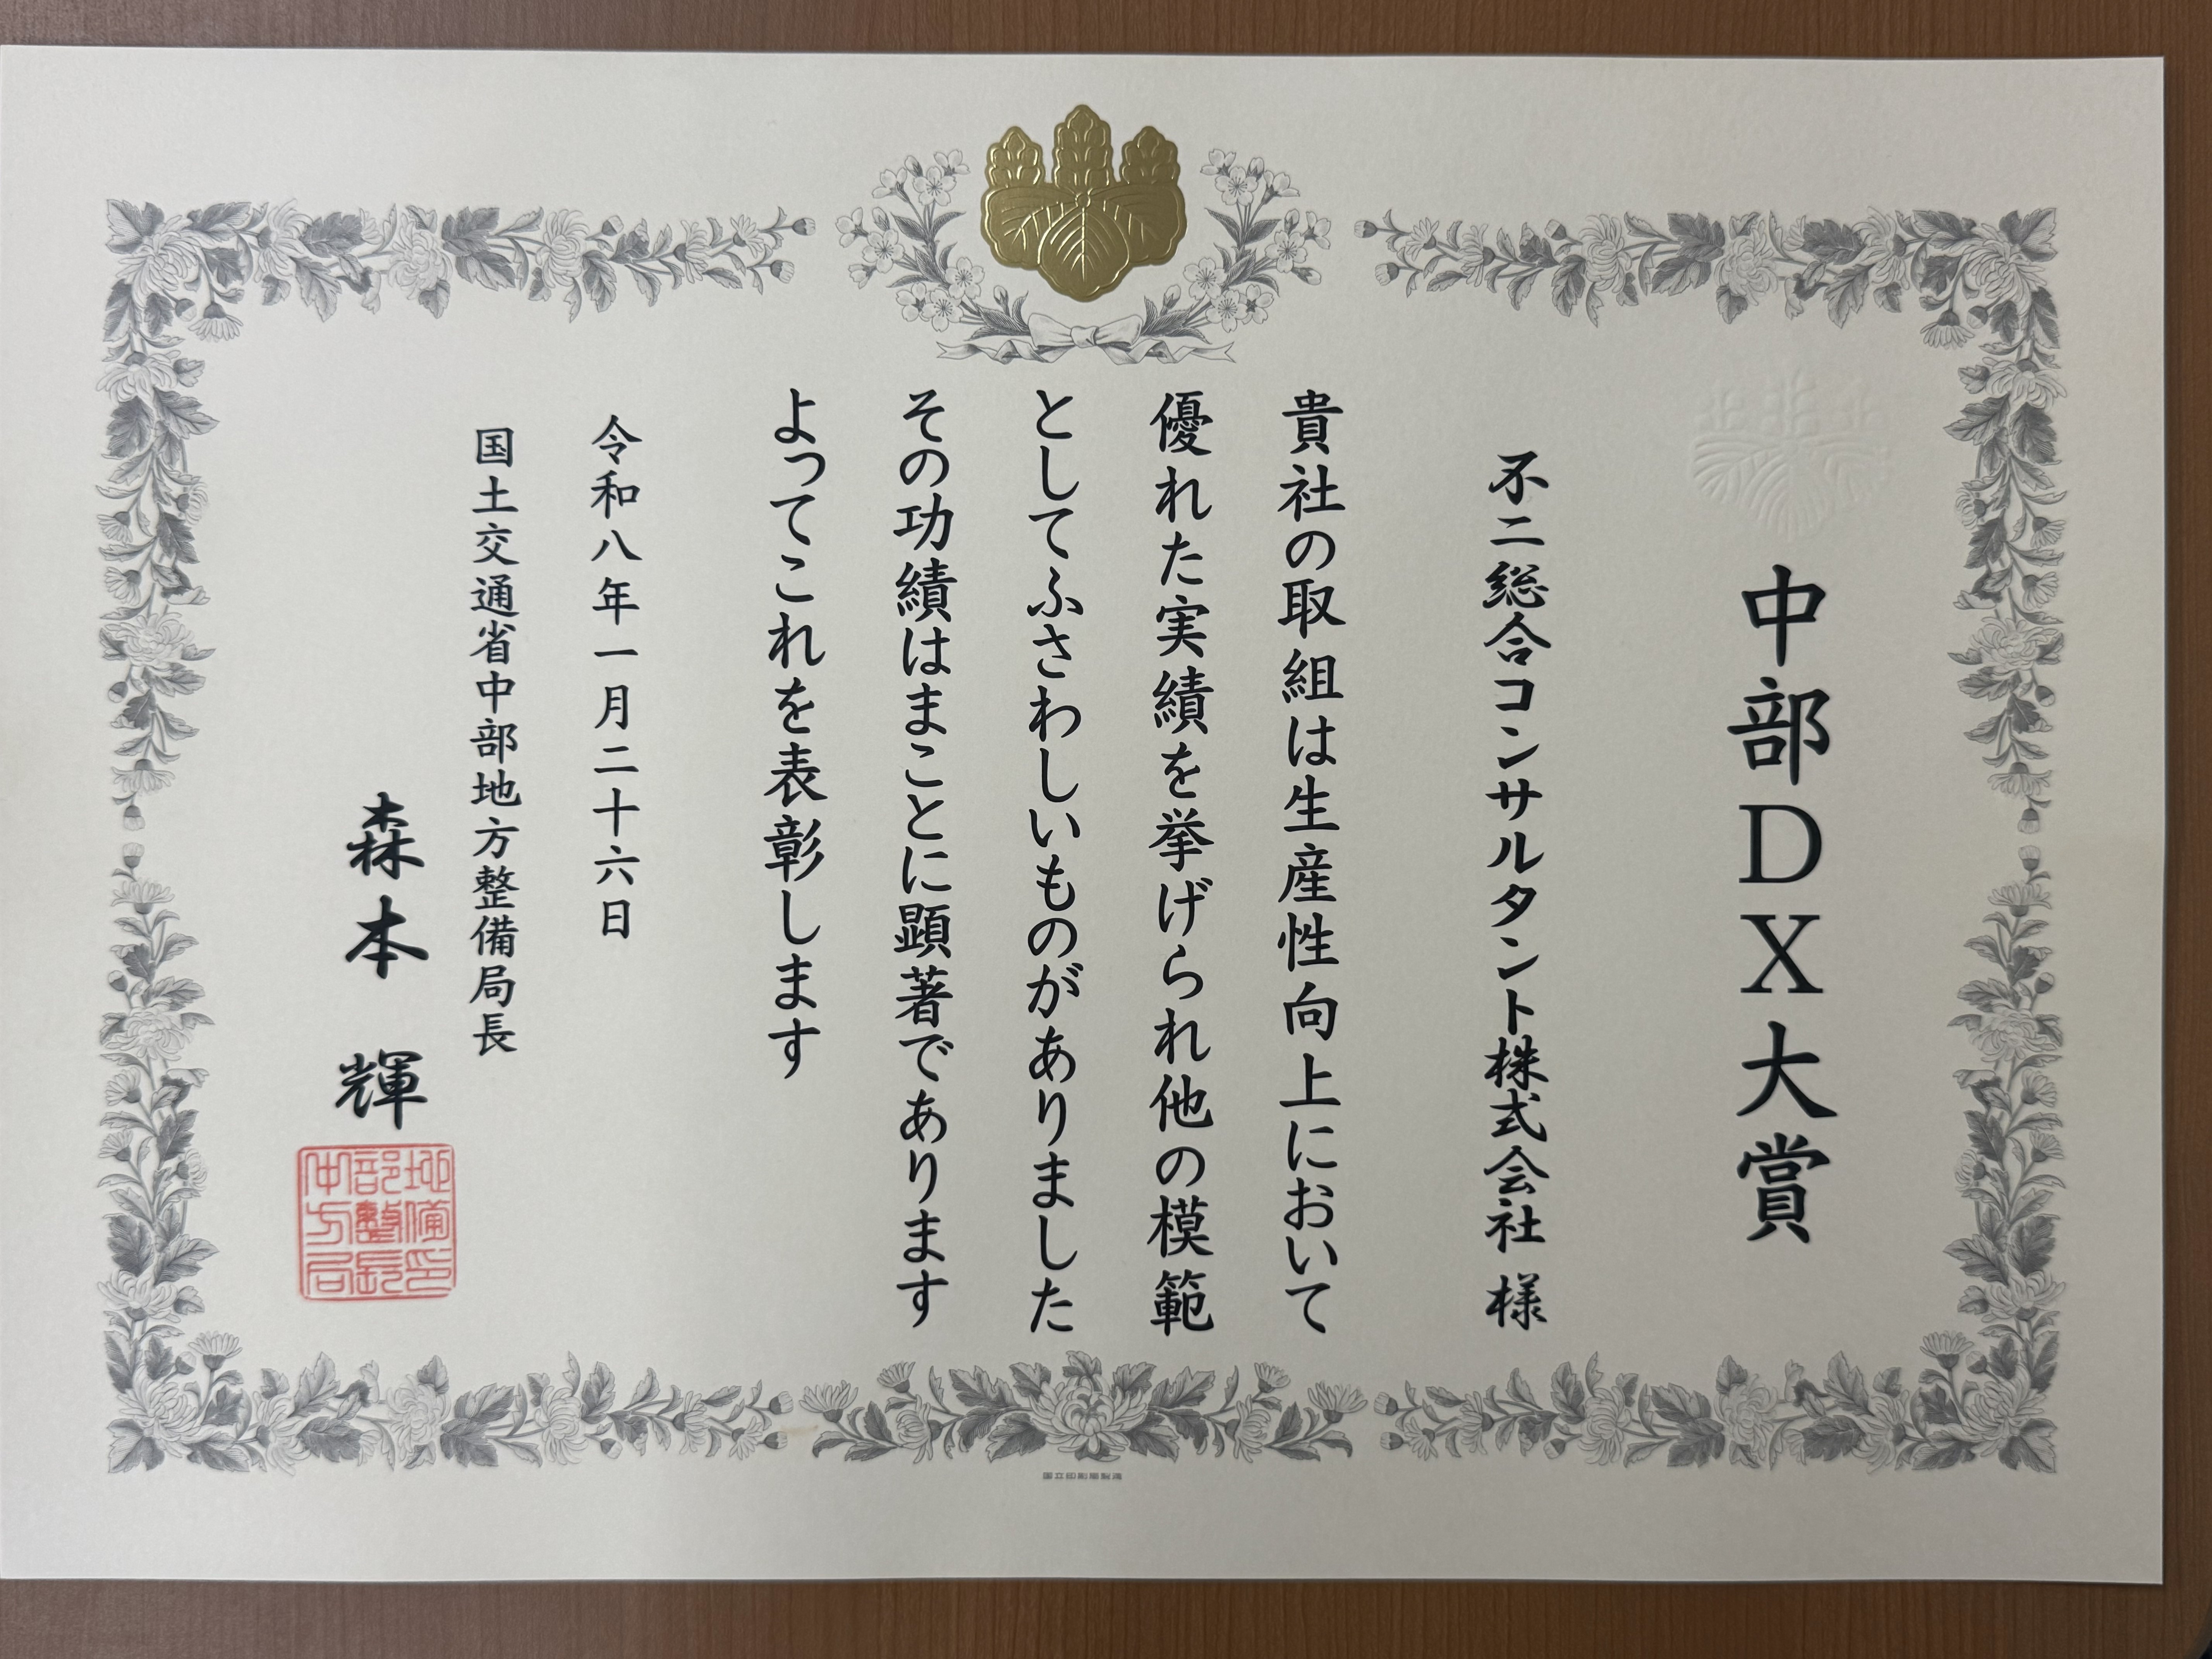 中部DX大賞
不二総合コンサルタント株式会社 様
貴社の取組は生産性向上において
優れた実績を挙げられ他の模範
としてふさわしいものがありました
その功績はまことに顕著であります
よってこれを表彰します
令和八年一月二十六日
国土交通省中部地方整備局長
森本 輝
地備印
部整長
中方局
国立印刷局製造